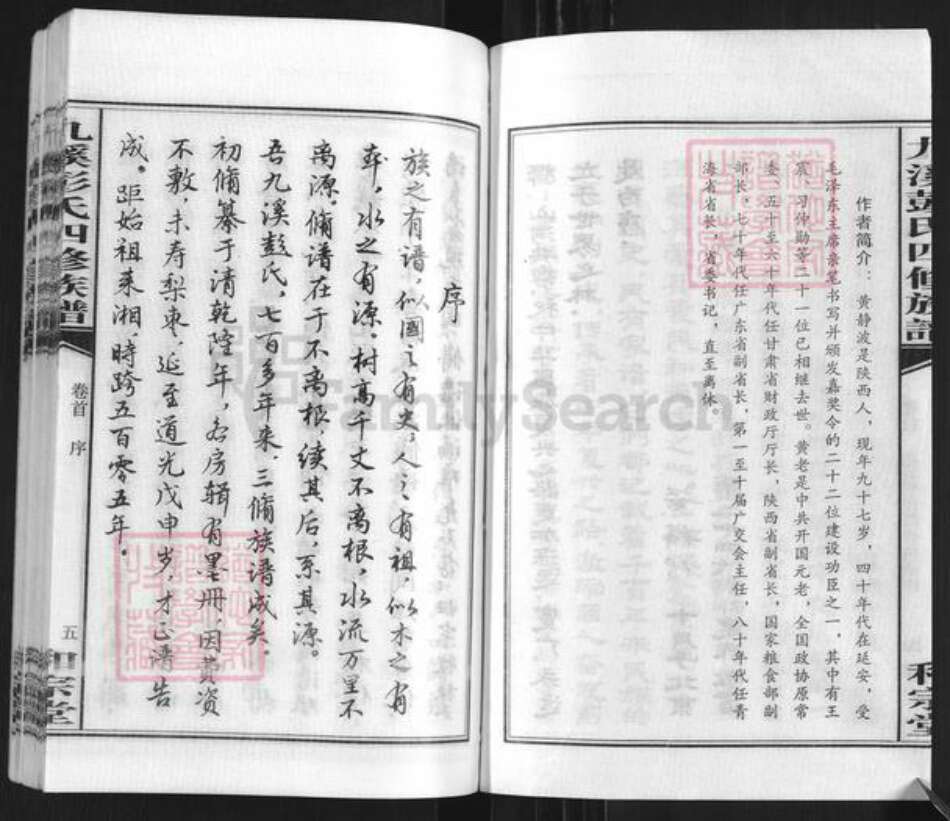 九溪彭氏四修族譜
和宗堂
作者简介：黄静波是陕西人，现年九十七岁，四十年代在延安，受
毛泽东主席亲笔书写并颁发嘉奖令的二十二位建设功臣之一，其中有王
震、习仲勋等二十一位已相继去世。黄老是中共开国元老，全国政协原常
委、五十至六十年代任甘肃省财政厅厅长，陕西省副省长，国家粮食部副
部长，七十年代任广东省副省长，第一至十届广交会主任，八十年代任青
海省省长，省委书记，直至离休。
序
族之有谱，似國之有史，人之有祖，似木之有
本，水之有源。树高千丈不离根，水流万里不
离源。脩谱在于不离根，续其后，系其源。
吾九溪彭氏，七百多年来，三脩族谱成矣。
初脩纂于清乾隆年，各房辑有墨册，因费资
不敷，未寿梨枣，延至道光戊申岁，才正谱告
成。距始祖来湘，時跨五百零五年。
九溪彭氏四修族譜
卷首 序
五
和宗堂
FamilySearch